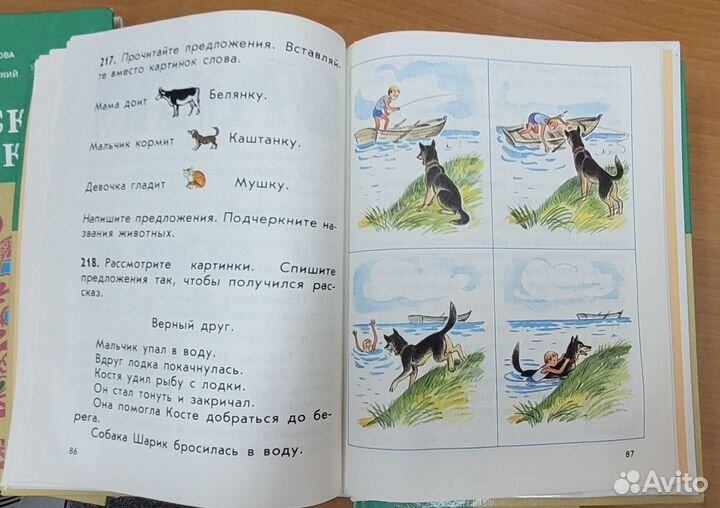 ОВА
СКИЙ
217. Прочитайте предложения. Вставляй-
те вместо картинок слова.
Мама доит Белянку.
Мальчик кормит Каштанку.
Девочка гладит Мушку.
Напишите предложения. Подчеркните на-
звания животных.
218. Рассмотрите картинки. Спишите
предложения так, чтобы получился рас-
сказ.
Верный друг.
Мальчик упал в воду.
Вдруг лодка покачнулась.
Костя удил рыбу с лодки.
Он стал тонуть и закричал.
Она помогла Косте добраться до бе-
рега.
Собака Шарик бросилась в воду.
86
87
Avito